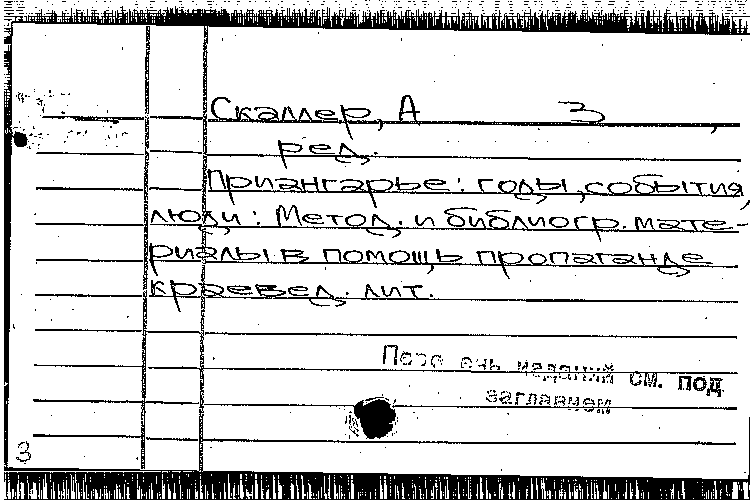 Скаллер, А З
ред.
Приангарье: годы, события,
люди: Метод. и библиогр. мате-
риалы в помощь пропаганде
краевед. лит.
Перечень изданий см. под
заглавием
3